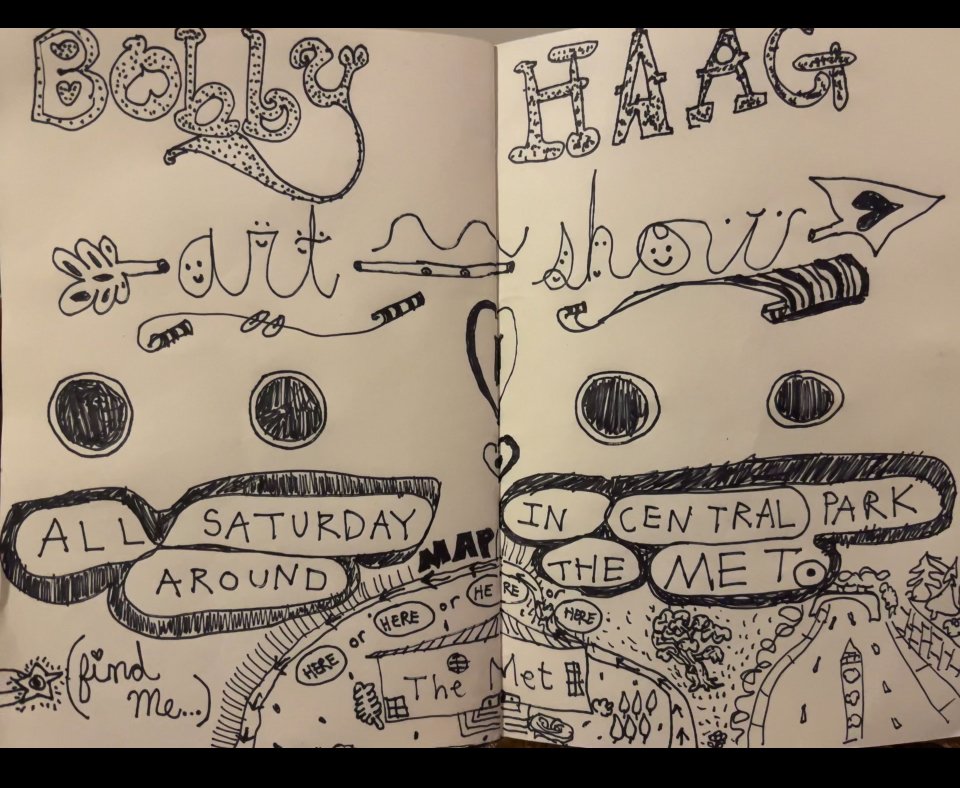 BObby HAAG
art show
ALL SATURDAY IN CENTRAL PARK
AROUND THE MET.
MAP
HERE or HERE or HERE or HERE
The Met
(find
me...)